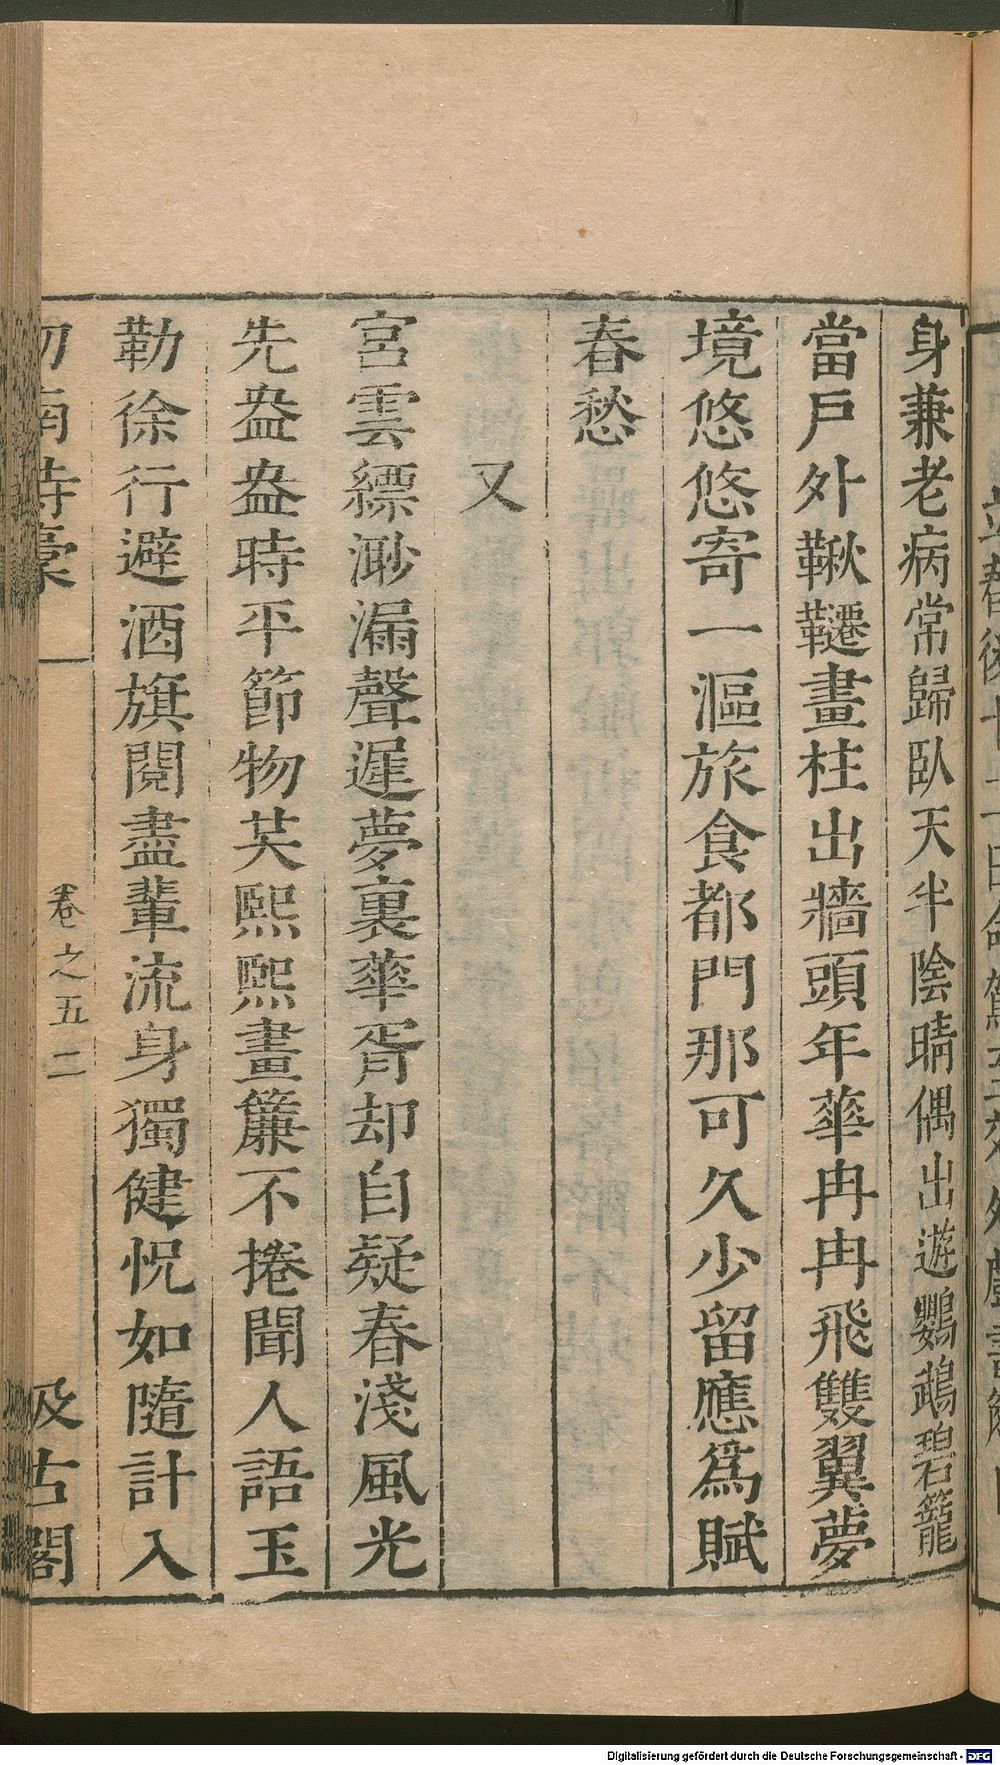 身兼老病常歸臥天半陰晴偶出遊鸚鵡碧籠
當戶外鞦韆畫柱出牆頭年華冉冉飛雙翼夢
境悠悠寄一漚旅食都門那可久少留應爲賦
春愁
又
宮雲縹渺漏聲遲夢裏華胥却自疑春淺風光
先盎盎時平節物共熙熙畫簾不捲聞人語玉
勒徐行避酒旗閱盡輩流身獨健怳如隨計入
劒南詩稾 卷之五 二 汲古閣
Digitalisierung gefördert durch die Deutsche Forschungsgemeinschaft - DFG